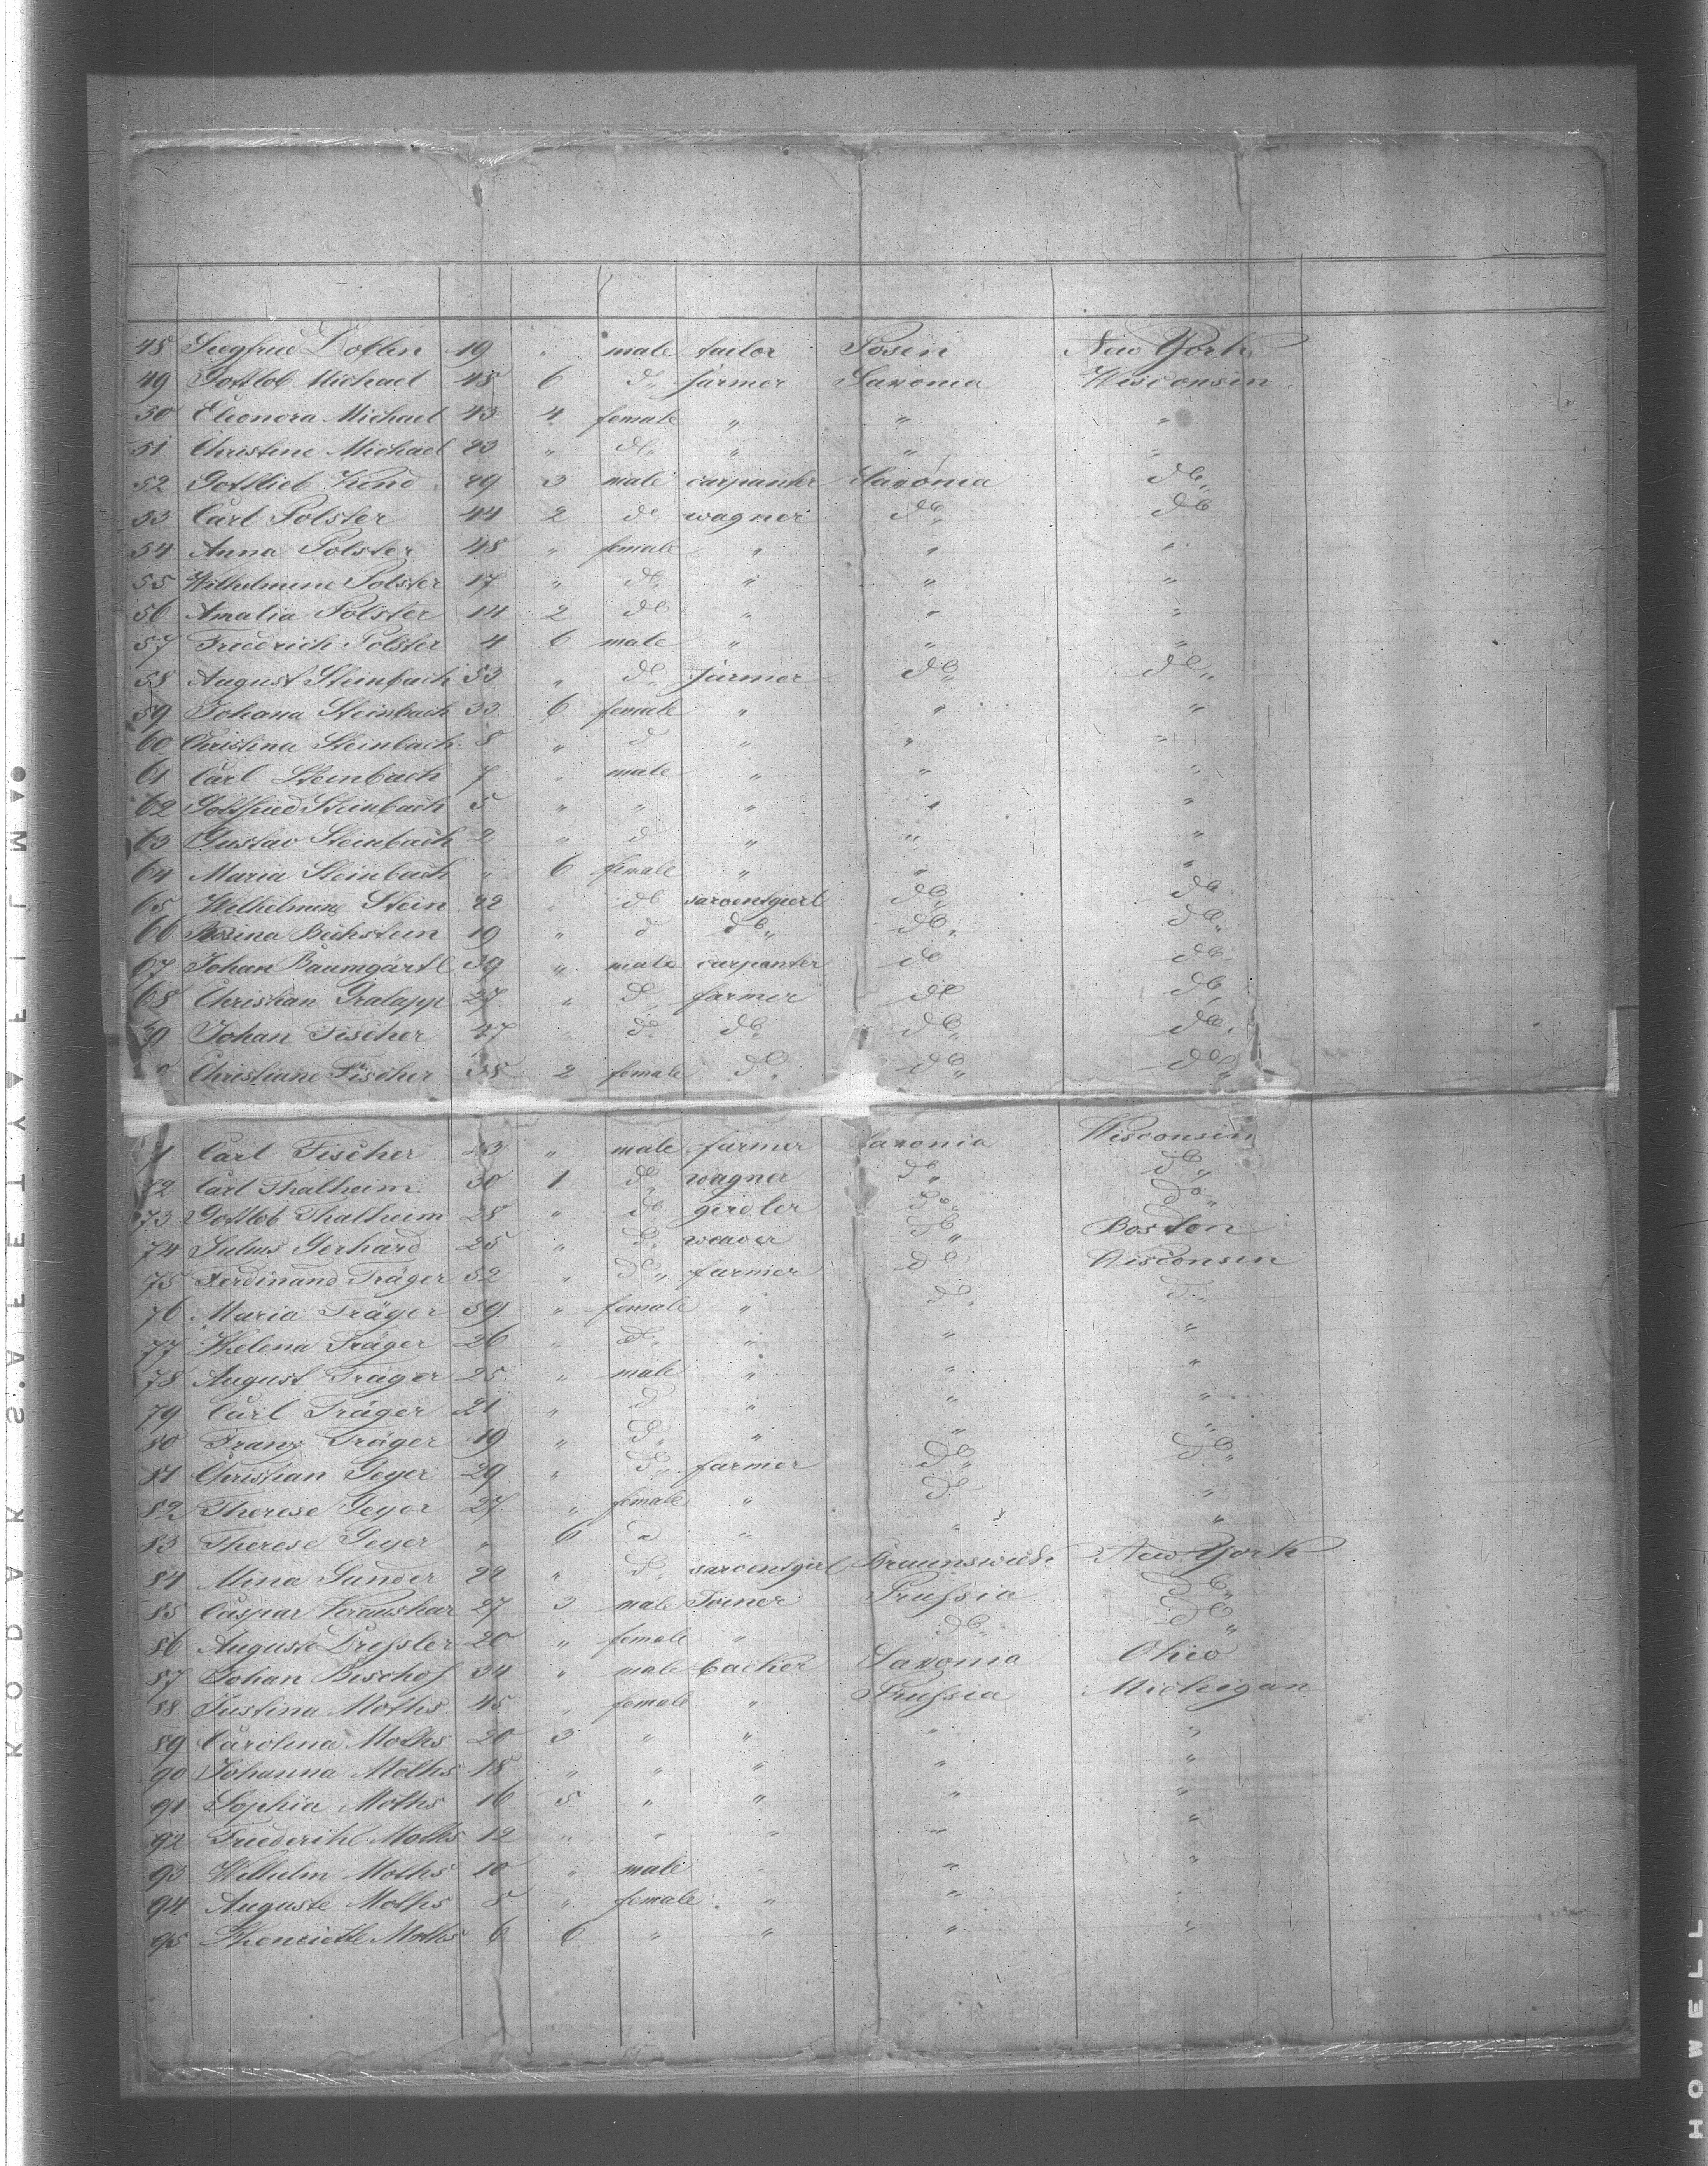 48 Siegfried Doblin 19 " male tailor Posen New York
49 Gottlob Michael 48 6 do farmer Saxonia Wisconsin
50 Eleonora Michael 43 4 female " " "
51 Christine Michael 23 " do " " "
52 Gottlieb Kund 29 3 male carpanter Saxonia do
53 Carl Polster 44 2 do wagner do do
54 Anna Polster 48 " female " " "
55 Wilhelmine Polster 17 " do " " "
56 Amalia Polster 14 2 do " " "
57 Friedrich Polster 4 6 male " " "
58 August Steinbach 53 " do farmer do do
59 Johana Steinbach 33 6 female " " "
60 Christina Steinbach 8 " d " " "
61 Carl Steinbach 7 " male " " "
62 Gottfried Steinbach 5 " " " " "
63 Gustav Steinbach 2 " d " " "
64 Maria Steinbach " 6 female " " "
65 Wilhelmine Stein 22 " do sarventgierl do do
66 Rosina Bechstein 19 " d do do do
67 Johan Baumgärtl 39 " male carpanter do do
68 Christian Gralapp 27 " do farmer do do
Johan Fischer 27 " do do do do
Christiane Fischer 38 2 female do do do
71 Carl Fischer 23 " male farmer Saxonia Wisconsin
72 Carl Thalheim 30 1 do wagner do do
73 Gottlob Thalheim 28 " do girdler do do
74 Julius Gerhard 25 " do weaver do Boston
75 Ferdinand Träger 52 " do farmer do Wisconsin
76 Maria Träger 59 " female " do do
77 Helena Träger 26 " do " " "
78 August Träger 25 " male " " "
79 Carl Träger 21 " d " " "
80 Franz Träger 19 " do " " "
81 Christian Geyer 29 " do farmer do do
82 Therese Geyer 27 " female " do "
83 Therese Geyer " 6 d " " "
84 Mina Sunder 22 " do sarventgirl Braunswick New York
85 Caspar 27 3 male Joiner Prussia do
86 Auguste Dressler 20 " female " do do
87 Johan Bischof 34 " male backer Saxonia Ohio
88 Justina Moths 45 " female " Prussia Michigan
89 Carolina Moths 20 3 " " " "
90 Johanna Moths 18 " " " " "
91 Sophia Moths 16 5 " " " "
92 Friederike Moths 12 " " " " "
93 Wilhelm Moths 10 " male " " "
94 Auguste Moths 8 " female " " "
95 Henriette Moths 6 6 " " " "
KODAK S.A.F.E.T.Y FILM
HOWELL